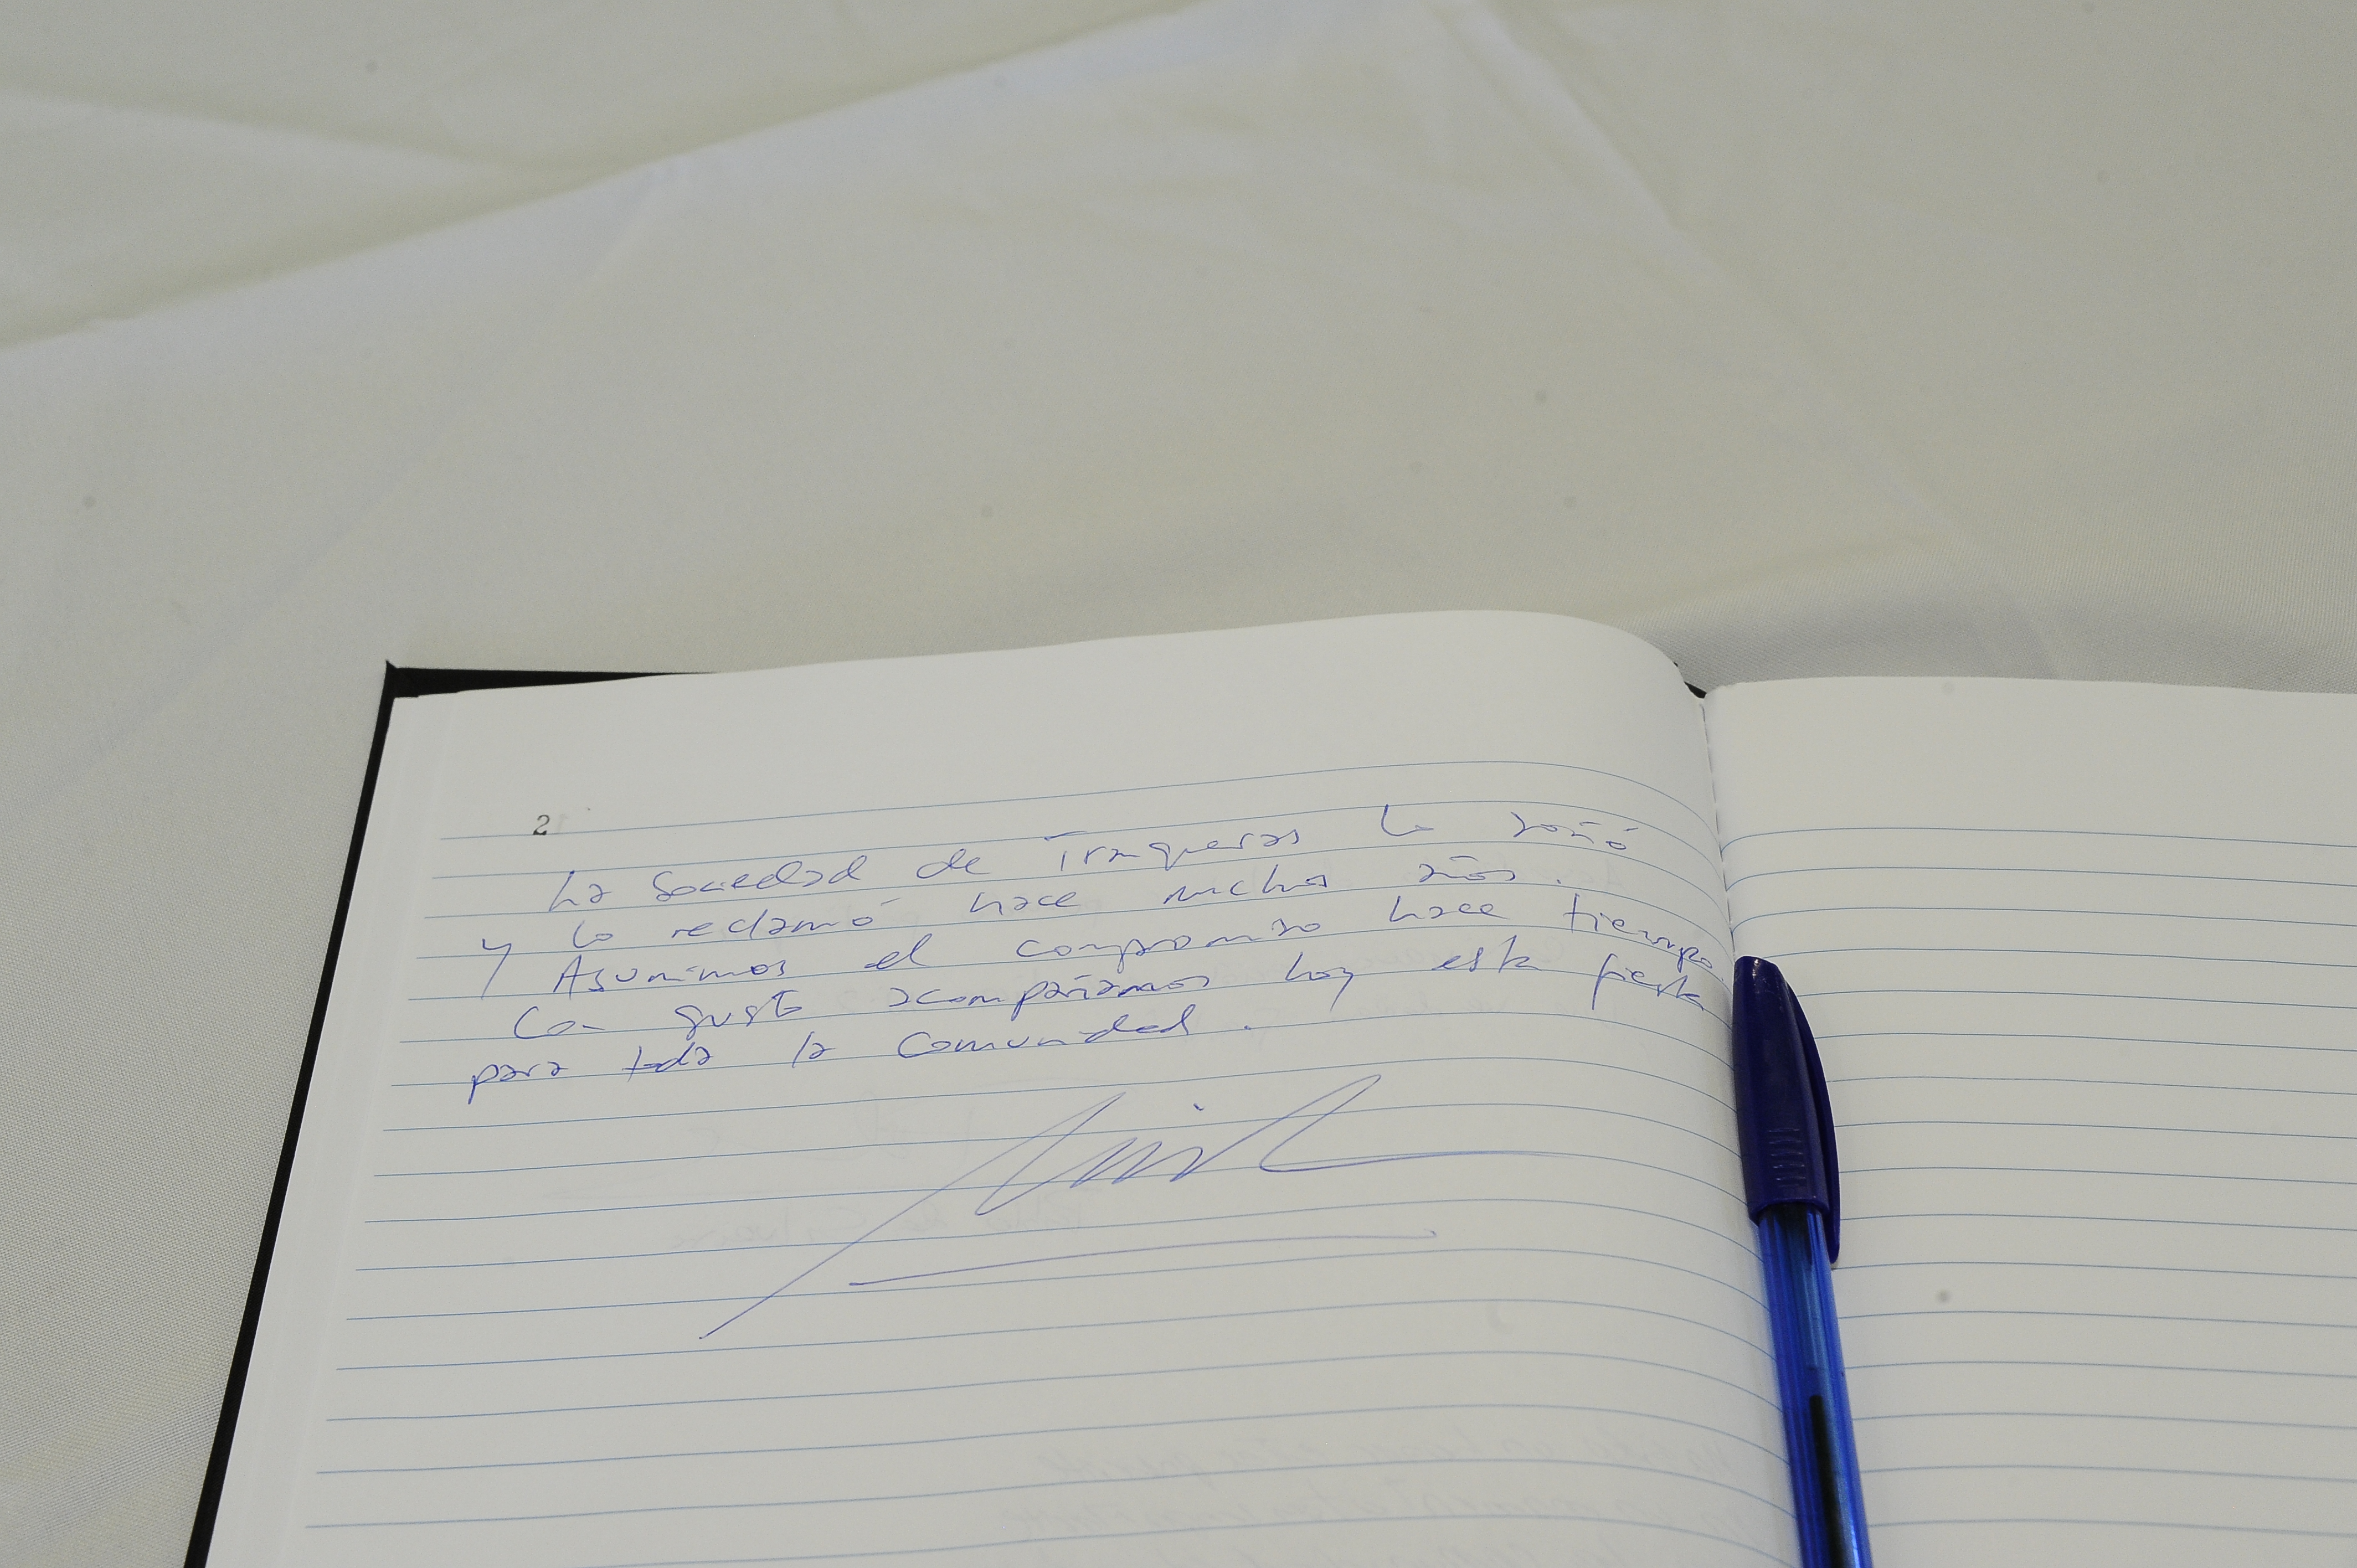 2
La Sociedad de Tranqueras lo soñó
y lo reclamó hace muchos años.
Asumimos el compromiso hace tiempo.
Con gusto acompañamos hoy esta fiesta
para toda la Comunidad.